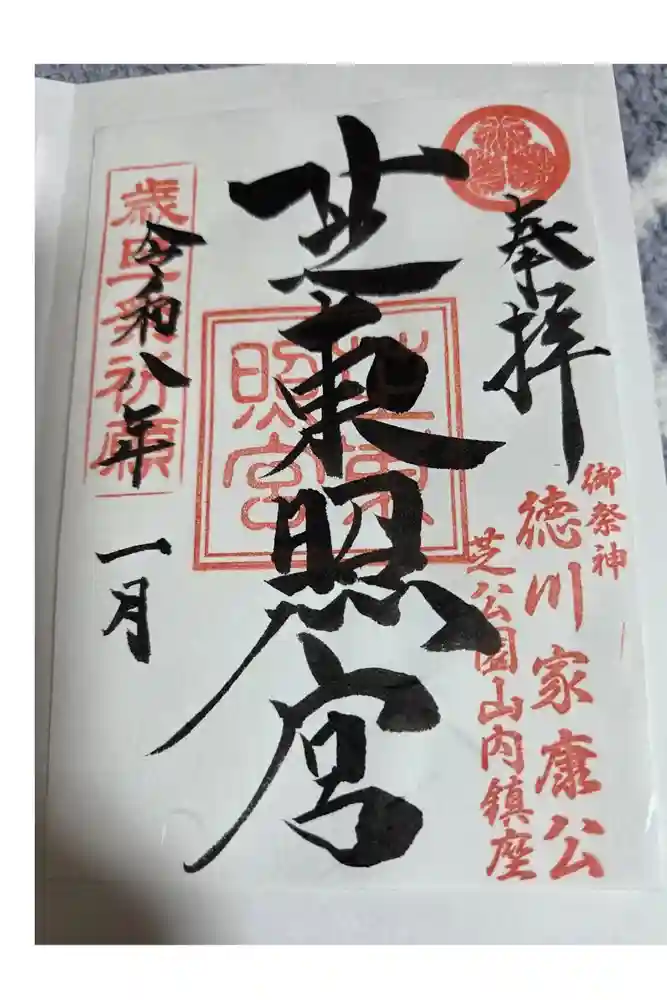 奉拝
御祭神
徳川家康公
芝公園山内鎮座
芝東照宮
芝東
照宮
歳旦祭祈願
令和八年
一月